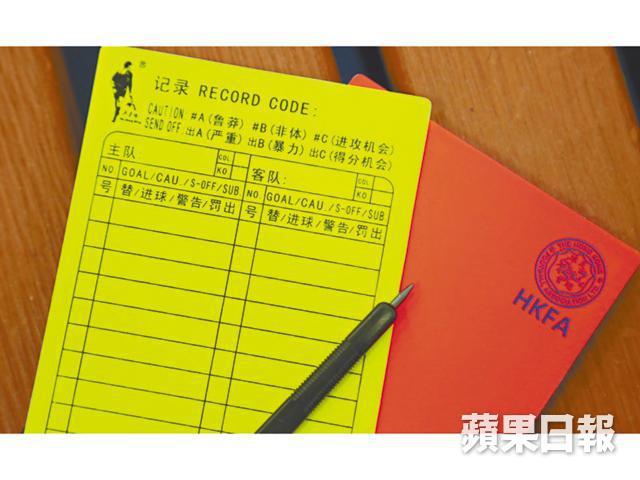 记录 RECORD CODE:
CAUTION #A(鲁莽) #B(非体) #C(进攻机会)
SEND OFF: 出A(严重) 出B(暴力) 出C(得分机会)
主队 COL. KO
客队: COL. KO
NO. GOAL/CAU./S-OFF/SUB NO. GOAL/CAU./S-OFF/SUB
号 替/进球/警告/罚出 号 替/进球/警告/罚出
HKFA
蘋果日報